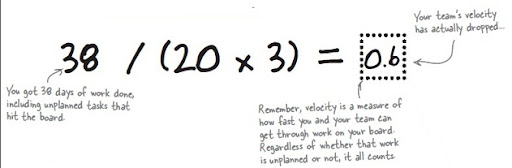 Your team's velocity
has actually dropped...
38 / (20 x 3) = 0.6
You got 38 days of work done,
including unplanned tasks that
hit the board.
Remember, velocity is a measure of
how fast you and your team can
get through work on your board.
Regardless of whether that work
is unplanned or not, it all counts